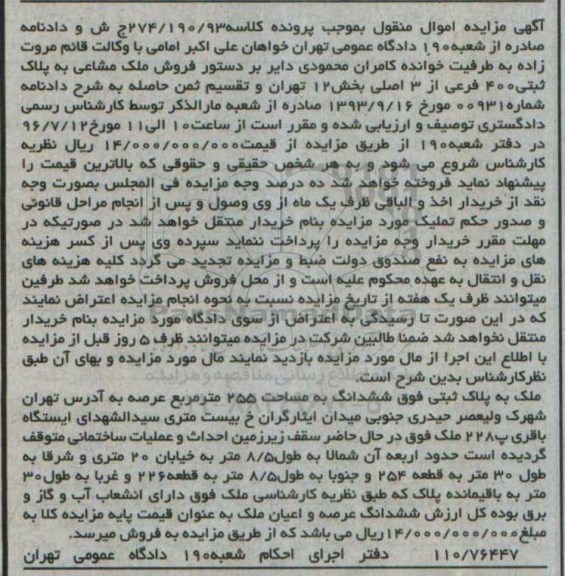 آگهی مزایده اموال منقول بموجب پرونده کلاسه۲۷۴/۱۹۰/۹۳ج ش و دادنامه
صادره از شعبه۱۹۰ دادگاه عمومی تهران خواهان علی اکبر امامی با وکالت قائم مروت
زاده به طرفیت خوانده کامران محمودی دایر بر دستور فروش ملک مشاعی به پلاک
ثبتی۴۰۰ فرعی از ۳ اصلی بخش۱۲ تهران و تقسیم ثمن حاصله به شرح دادنامه
شماره۰۰۹۳۱ مورخ ۱۳۹۳/۹/۱۶ صادره از شعبه مارالذکر توسط کارشناس رسمی
دادگستری توصیف و ارزیابی شده و مقرر است از ساعت۱۰ الی۱۱ مورخ۹۶/۷/۱۲
در دفتر شعبه۱۹۰ از طریق مزایده از قیمت۱۴/۰۰۰/۰۰۰/۰۰۰ ریال نظریه
کارشناس شروع می شود و به هر شخص حقیقی و حقوقی که بالاترین قیمت را
پیشنهاد نماید فروخته خواهد شد ده درصد وجه مزایده فی المجلس بصورت وجه
نقد از خریدار اخذ و الباقی ظرف یک ماه از وی وصول و پس از انجام مراحل قانونی
و صدور حکم تملیک مورد مزایده بنام خریدار منتقل خواهد شد در صورتیکه در
مهلت مقرر خریدار وجه مزایده را پرداخت ننماید سپرده وی پس از کسر هزینه
های مزایده به نفع صندوق دولت ضبط و مزایده تجدید می گردد کلیه هزینه های
نقل و انتقال به عهده محکوم علیه است و از محل فروش پرداخت خواهد شد طرفین
میتوانند ظرف یک هفته از تاریخ مزایده نسبت به نحوه انجام مزایده اعتراض نمایند
که در این صورت تا رسیدگی به اعتراض از سوی دادگاه مورد مزایده بنام خریدار
منتقل نخواهد شد ضمنا طالبین شرکت در مزایده میتوانند ظرف ۵ روز قبل از مزایده
با اطلاع این اجرا از مال مورد مزایده بازدید نمایند مال مورد مزایده و بهای آن طبق
نظرکارشناس بدین شرح است.
ملک به پلاک ثبتی فوق ششدانگ به مساحت ۲۵۵ مترمربع عرصه به آدرس تهران
شهرک ولیعصر حیدری جنوبی میدان ایثارگران خ بیست متری سیدالشهدای ایستگاه
باقری پ۲۲۸ ملک فوق در حال حاضر سقف زیرزمین احداث و عملیات ساختمانی متوقف
گردیده است حدود اربعه آن شمالا به طول۸/۵ متر به خیابان ۲۰ متری و شرقا به
طول ۳۰ متر به قطعه ۲۵۴ و جنوبا به طول۸/۵ متر به قطعه۲۲۶ و غربا به طول۳۰
متر به باقیمانده پلاک که طبق نظریه کارشناسی ملک فوق دارای انشعاب آب و گاز و
برق بوده کل ارزش ششدانگ عرصه و اعیان ملک به عنوان قیمت پایه مزایده کلا به
مبلغ۱۴/۰۰۰/۰۰۰/۰۰۰ریال می باشد که از طریق مزایده به فروش میرسد.
۱۱۰/۷۶۴۴۷ دفتر اجرای احکام شعبه۱۹۰ دادگاه عمومی تهران